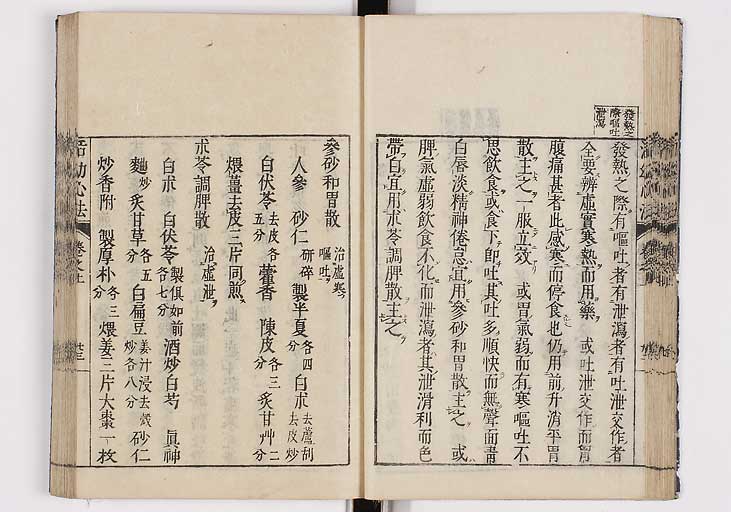 發熱之
際嘔吐
泄瀉
發熱之際有嘔吐者有泄瀉者有吐泄交作者
全要辨虛實寒熱而用藥 或吐泄交作而胃
腹痛甚者此感寒而停食也仍用前升消平胃
散主之一服立效 或胃氣弱而有寒嘔吐不
思飲食或食下即吐其吐多順快而無聲面青
白唇淡精神倦怠宜用參砂和胃散主之 或
脾氣虛弱飲食不化而泄瀉者其泄滑利而色
帶白宜用朮苓調脾散主之
參砂和胃散 治虛寒嘔吐
人參 砂仁研碎 製半夏各四分 白朮去蘆刮去皮炒
五分 白伏苓去皮各 藿香 陳皮各三分 炙甘艸二分
煨薑去皮三片同煎
朮苓調脾散 治虛泄
白朮 白伏苓製俱如前各七分 酒炒白芍 眞神
麯炒 炙甘草各五分 白扁豆姜汁浸去殼炒各八分 砂仁
炒香附 製厚朴各三分 煨姜三片大棗一枚
活幼心法 卷之五 廿三